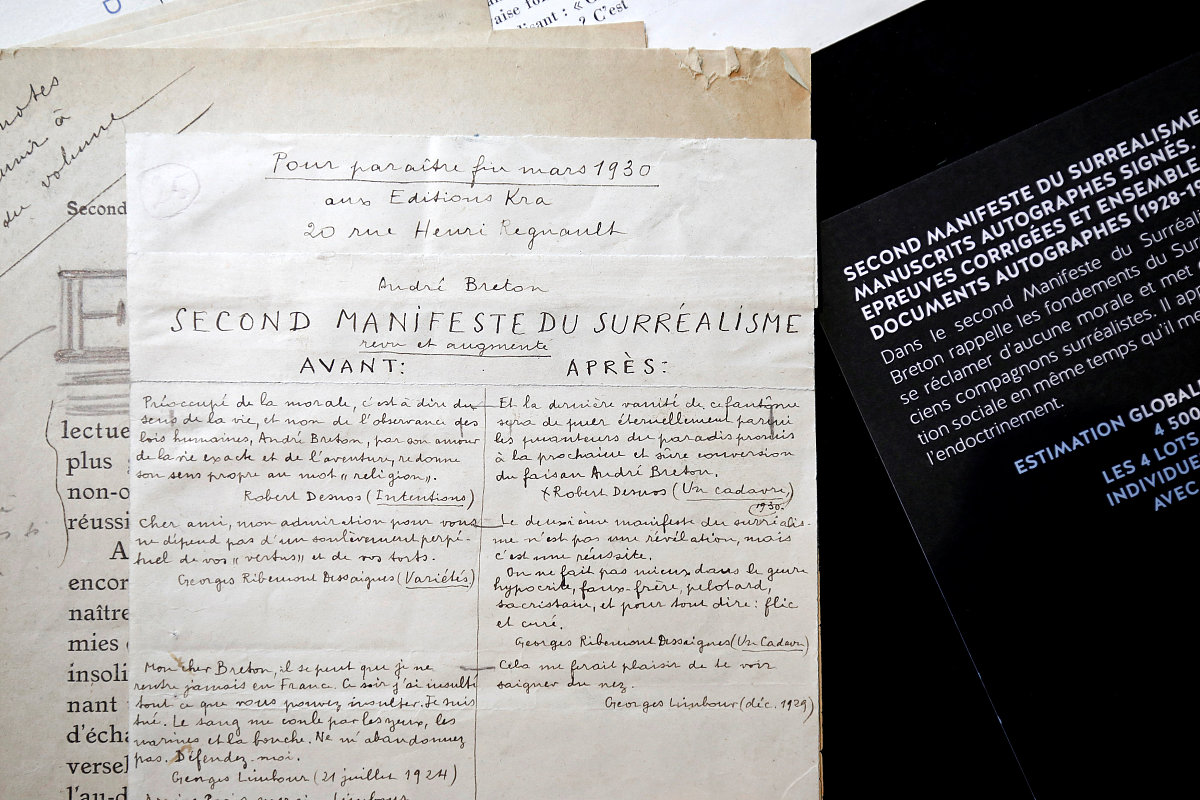 aise fo
lisant : « C
? C'est
notes
venir à
du volume
Second
lectue
plus
non-o
réussi
A
encor
naître
mies
insoli
nant
d'écha
versel
l'au-d
Pour paraître fin mars 1930
aux Editions Kra
20 rue Henri Regnault
André Breton
SECOND MANIFESTE DU SURRÉALISME
revu et augmenté
AVANT:
Préoccupé de la morale, c'est à dire du
sens de la vie, et non de l'observance des
lois humaines, André Breton, par son amour
de la vie exacte et de l'aventure, redonne
son sens propre au mot « religion ».
Robert Desnos (Intentions)
Cher ami, mon admiration pour vous
ne dépend pas d'un soulèvement perpé-
tuel de vos « vertus » et de vos torts.
Georges Ribemont Dessaignes (Variétés)
Mon cher Breton, il se peut que je ne
rentre jamais en France. Ce soir j'ai insulté
tout ce que vous pouvez insulter. Je suis
tué. Le sang me coule par les yeux, les
narines et la bouche. Ne m'abandonnez
pas. Défendez-moi.
Georges Limbour (21 juillet 1924)
Limbour
APRÈS:
Et la dernière vanité de ce fantôme
sera de puer éternellement parmi
les puanteurs du paradis promis
à la prochaine et sûre conversion
du faisan André Breton.
Robert Desnos (Un cadavre,
1930.
Le deuxième manifeste du surréalis-
me n'est pas une révélation, mais
c'est une réussite.
On ne fait pas mieux dans le genre
hypocrite, faux-frère, pelotard,
sacristain, et pour tout dire : flic
et curé.
Georges Ribemont Dessaignes (Un Cadavre)
Cela me ferait plaisir de te voir
saigner du nez.
Georges Limbour (déc. 1929)
SECOND MANIFESTE DU SURREALISME
MANUSCRITS AUTOGRAPHES SIGNÉS.
EPREUVES CORRIGÉES ET ENSEMBLE
DOCUMENTS AUTOGRAPHES (1928-1
Dans le second Manifeste du Surréal
Breton rappelle les fondements du Sur
se réclamer d'aucune morale et met
ciens compagnons surréalistes. Il app
tion sociale en même temps qu'il me
l'endoctrinement.
ESTIMATION GLOBAL
4 500
LES 4 LOTS
INDIVIDUE
AVEC